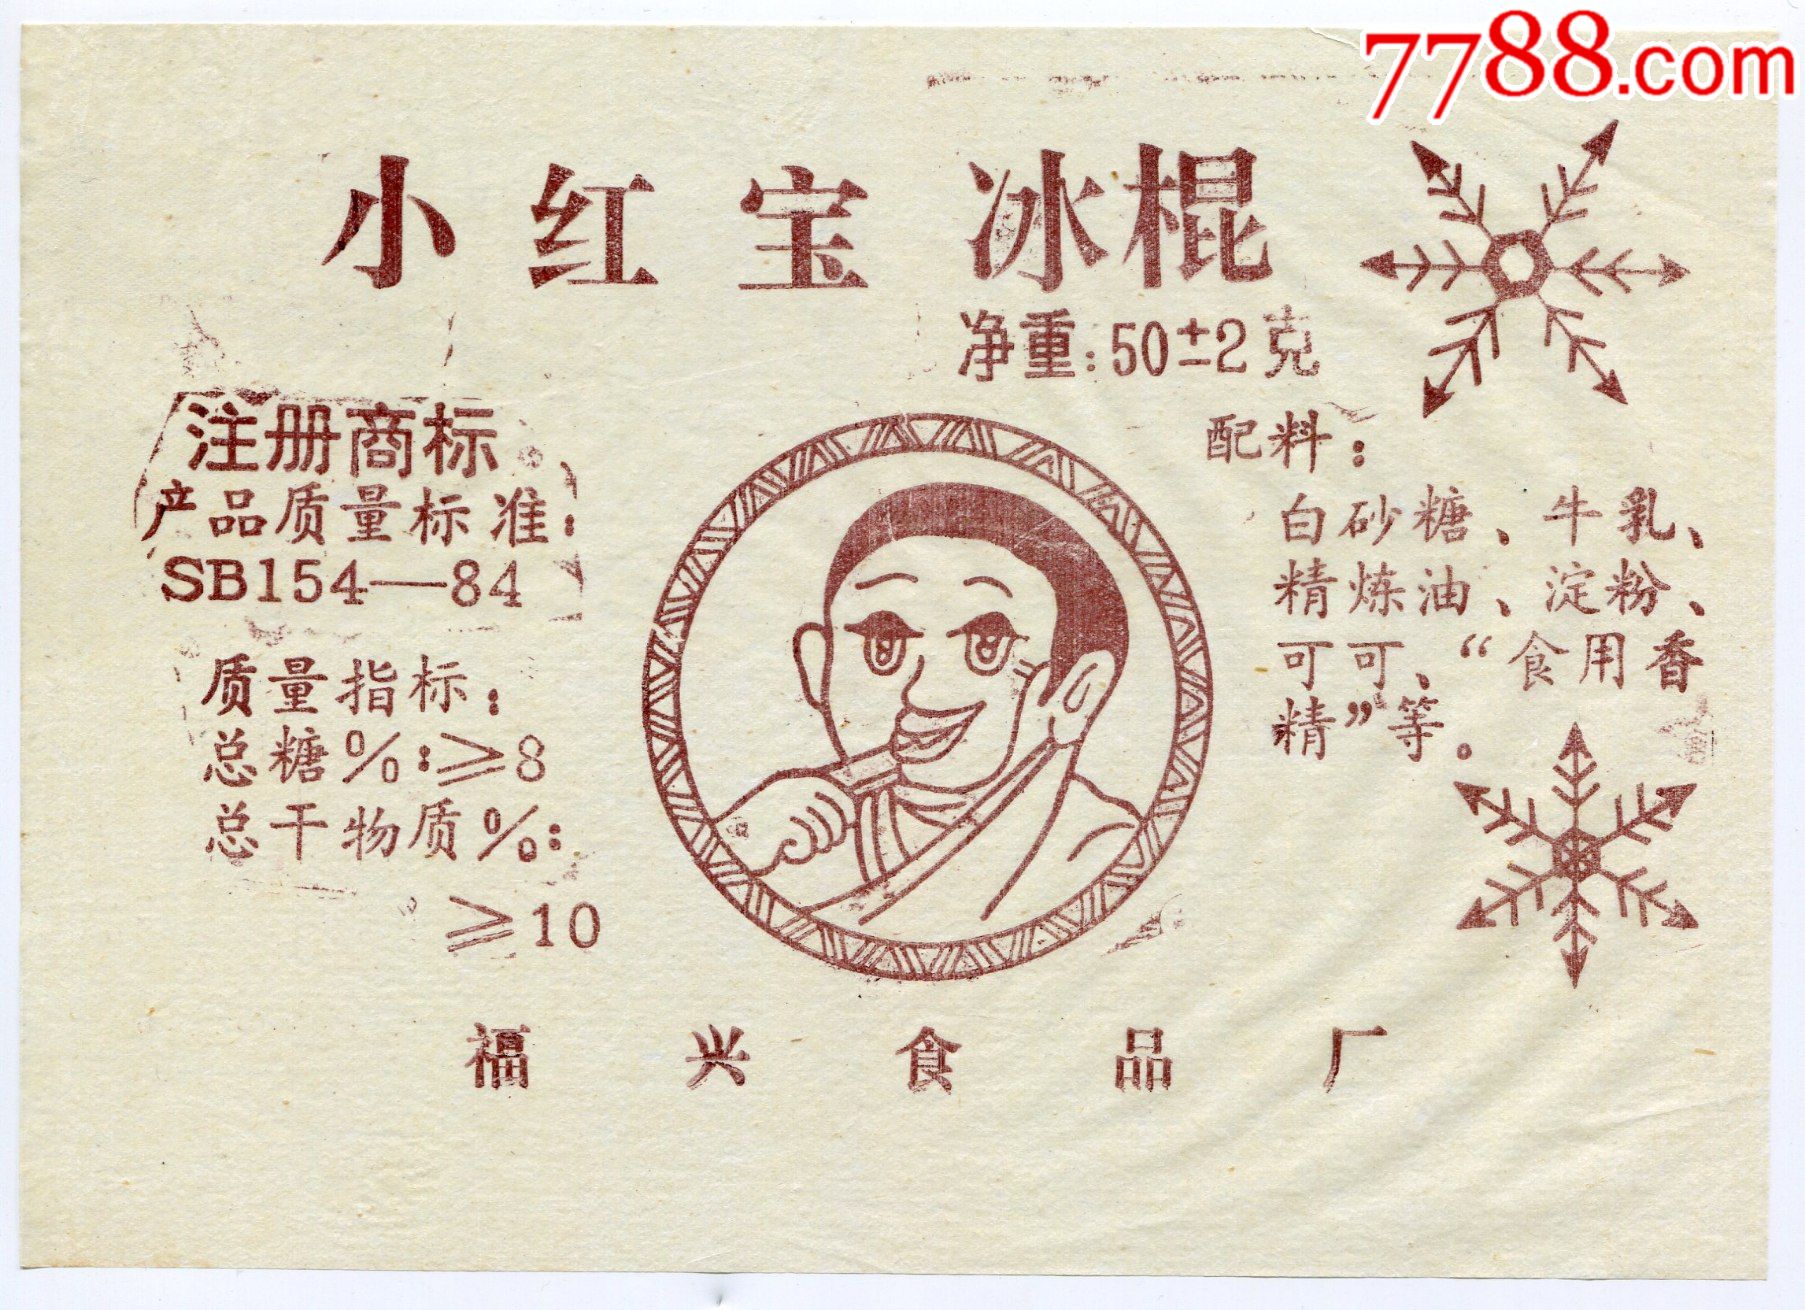 7788.com
小红宝 冰棍
净重:50±2克
注册商标
产品质量标准:
SB154—84
质量指标:
总糖%:≥8
总干物质%:
≥10
配料:
白砂糖、牛乳、
精炼油、淀粉、
可可、“食用香
精”等。
福兴食品厂